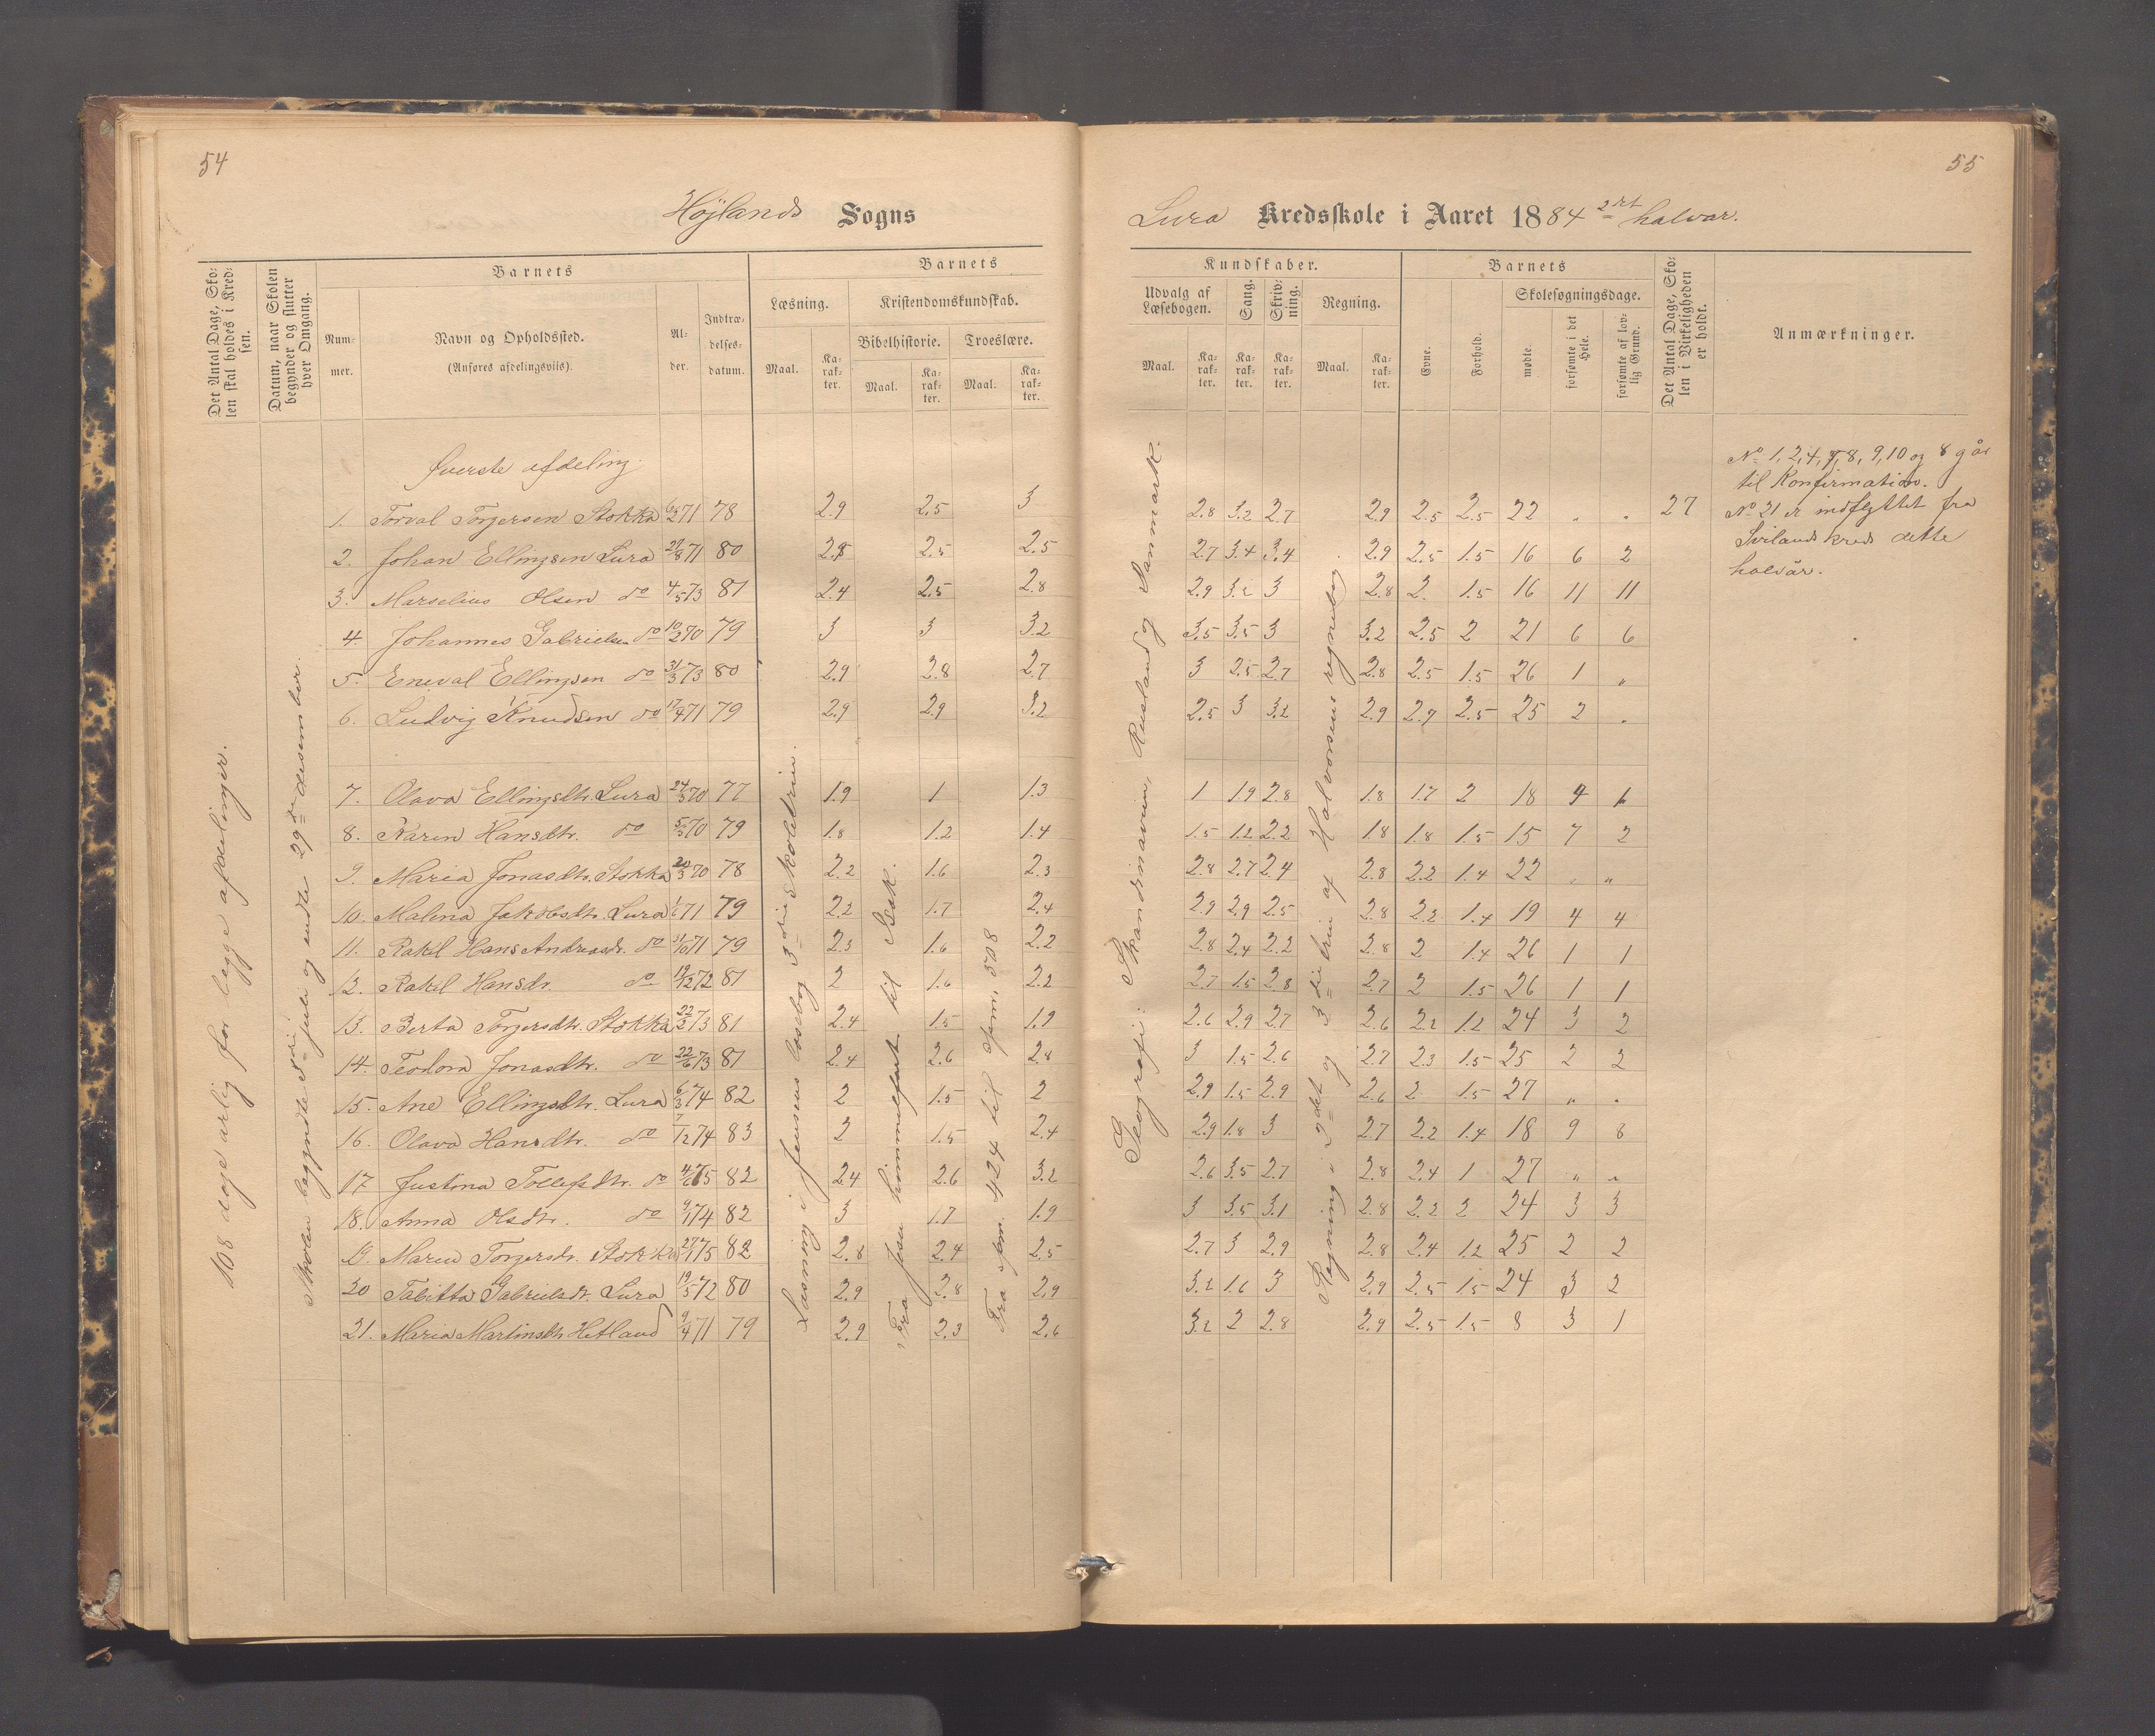 54
55
Højlands Sogns
Lura Kredsskole i Aaret 1884 2det halvar.
Det Antal Dage, Skolen skal holdes i Kredsen.
Datum, naar Skolen begynder og slutter hver Omgang.
Barnets
Nummer.
Navn og Opholdssted.
(Anføres afdelingsviis).
Alder.
Indtrædelsesdatum.
Barnets
Læsning.
Kristendomskundskab.
Bibelhistorie. Troeslære.
Maal. Karakter. Maal. Karakter. Maal. Karakter.
Kundskaber.
Udvalg af Læsebogen. Sang. Skrivning. Regning.
Maal. Karakter. Karakter. Karakter. Maal. Karakter.
Barnets
Evne. Forhold.
Skolesøgningsdage.
mødte. forsømte i det Hele. forsømte af lovlig Grund.
Det Antal Dage, Skolen i Virkeligheden er holdt.
Anmærkninger.
108 dage arlig for begge afdelinger.
Skolen begyndte juli og endte 29de desember.
Læsning i Jensens læsebog 3die skoletrin.
Fra Jesu himmelfart til Besk.
Fra spm. 424 til spm. 508
Geografi: Skandinavien, Rusland og Danmark.
Regning: 2det og 3die trin af Halvorsens regnebog
Øverste afdeling.
1. Torval Torgersen Stokka 71 78 2.9 2.5 3 2.8 3.2 2.7 2.9 2.5 2.5 22 „ „ 27
2. Johan Ellingsen Lura 27/8 71 80 2.8 2.5 2.5 2.7 3.4 3.4 2.9 2.5 1.5 16 6 2
3. Marselius Olsen do 4/5 73 81 2.4 2.5 2.8 2.9 3.2 3 2.8 2. 1.5 16 11 11
4. Johannes Gabrielsen do 10/2 70 79 3 3 3.2 3.5 3.5 3 3.2 2.5 2 21 6 6
5. Eneval Ellingsen do 31/3 73 80 2.9 2.8 2.7 3 2.5 2.7 2.8 2.5 1.5 26 1 „
6. Ludvig Knudsen do 17/4 71 79 2.9 2.9 3.2 2.5 3 3.2 2.9 2.9 2.5 25 2 „
7. Olava Ellingsdtr. Lura 24/3 70 77 1.9 1 1.3 1 1.9 2.8 1.8 1.7 2 18 4 1
8. Karen Hansdtr. do 5/3 70 79 1.8 1.2 1.4 1.5 1.2 2.2 1.8 1.8 1.5 15 7 2
9. Maria Jonasdtr. Stokka 70 78 2.2 1.6 2.3 2.8 2.7 2.4 2.8 2.2 1.4 22 „ „
10. Malena Jakobsdtr. Lura 1/6 71 79 2.2 1.7 2.4 2.9 2.9 2.5 2.8 2.2 1.4 19 4 4
11. Rakel Hans Andreasdr. do 31/10 71 79 2.3 1.6 2.2 2.8 2.4 2.2 2.8 2 1.4 26 1 1
12. Rakel Hansdr. do 19/12 72 81 2 1.6 2.2 2.7 1.5 2.8 2.7 2 1.5 26 1 1
13. Berta Torgersdtr. Stokka 22/2 73 81 2.4 1.5 1.9 2.6 2.9 2.7 2.6 2.2 1.2 24 3 2
14. Teodora Jonasdtr. do 22/6 73 81 2.4 2.6 2.8 3 1.5 2.6 2.7 2.3 1.5 25 2 2
15. Ane Ellingsdtr. Lura 6/3 74 82 2 1.5 2 2.9 1.5 2.9 2.6 2 1.5 27 „ „
16. Olava Hansdtr. do 7/12 74 83 2 1.5 2.4 2.9 1.8 3 2.7 2.2 1.4 18 9 8
17 Justina Tollefsdtr. do 4/6 75 82 2.4 2.6 3.2 2.6 3.5 2.7 2.8 2.4 1 27 „ „
18. Anna Olsdtr. do 9/1 74 82 3 1.7 1.9 3 3.5 3.1 2.8 2.2 2 24 3 3
19. Maren Torgersdr. Stokka 27/1 75 82 2.8 2.4 2.5 2.7 3 2.9 2.8 2.4 1.2 25 2 2
20 Tabitta Gabrielsdt. Lura 19/5 72 80 2.9 2.8 2.9 3.2 1.6 3 2.9 2.5 1.5 24 3 2
21. Maria Martinsdtr. Hetland 9/4 71 79 2.9 2.3 2.6 3.2 2 2.8 2.9 2.5 1.5 8 3 1
No 1, 2, 4, 7, 8, 9, 10 og 8 går
til Konfirmation.
No 21 er indflyttet fra
Svilands kreds dette
halvår.